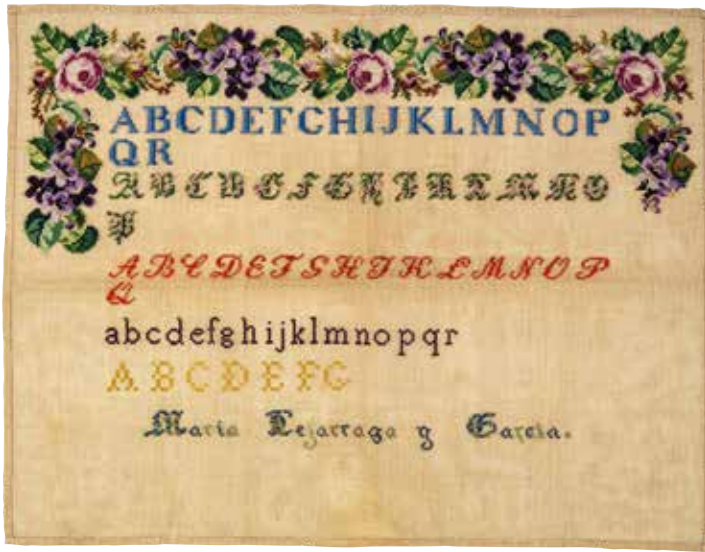 ABCDEFGHIJKLMNOP
QR
ABCDEFGHIJKLMNO
P
ABCDEFGHIJKLMNOP
Q
abcdefghijklmnopqr
ABCDEFG
Maria Lejarraga y Garcia.